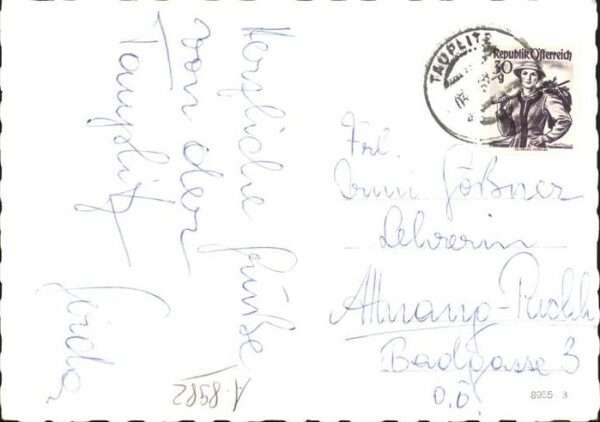 Herzliche Grüße
von der
Tauplitz
TAUPLITZ
Republik Österreich
30
g
Frl.
Gößner
Lehrerin
Attnang-Puchh
Badgasse 3
O.Ö.
A-8982
8955 3